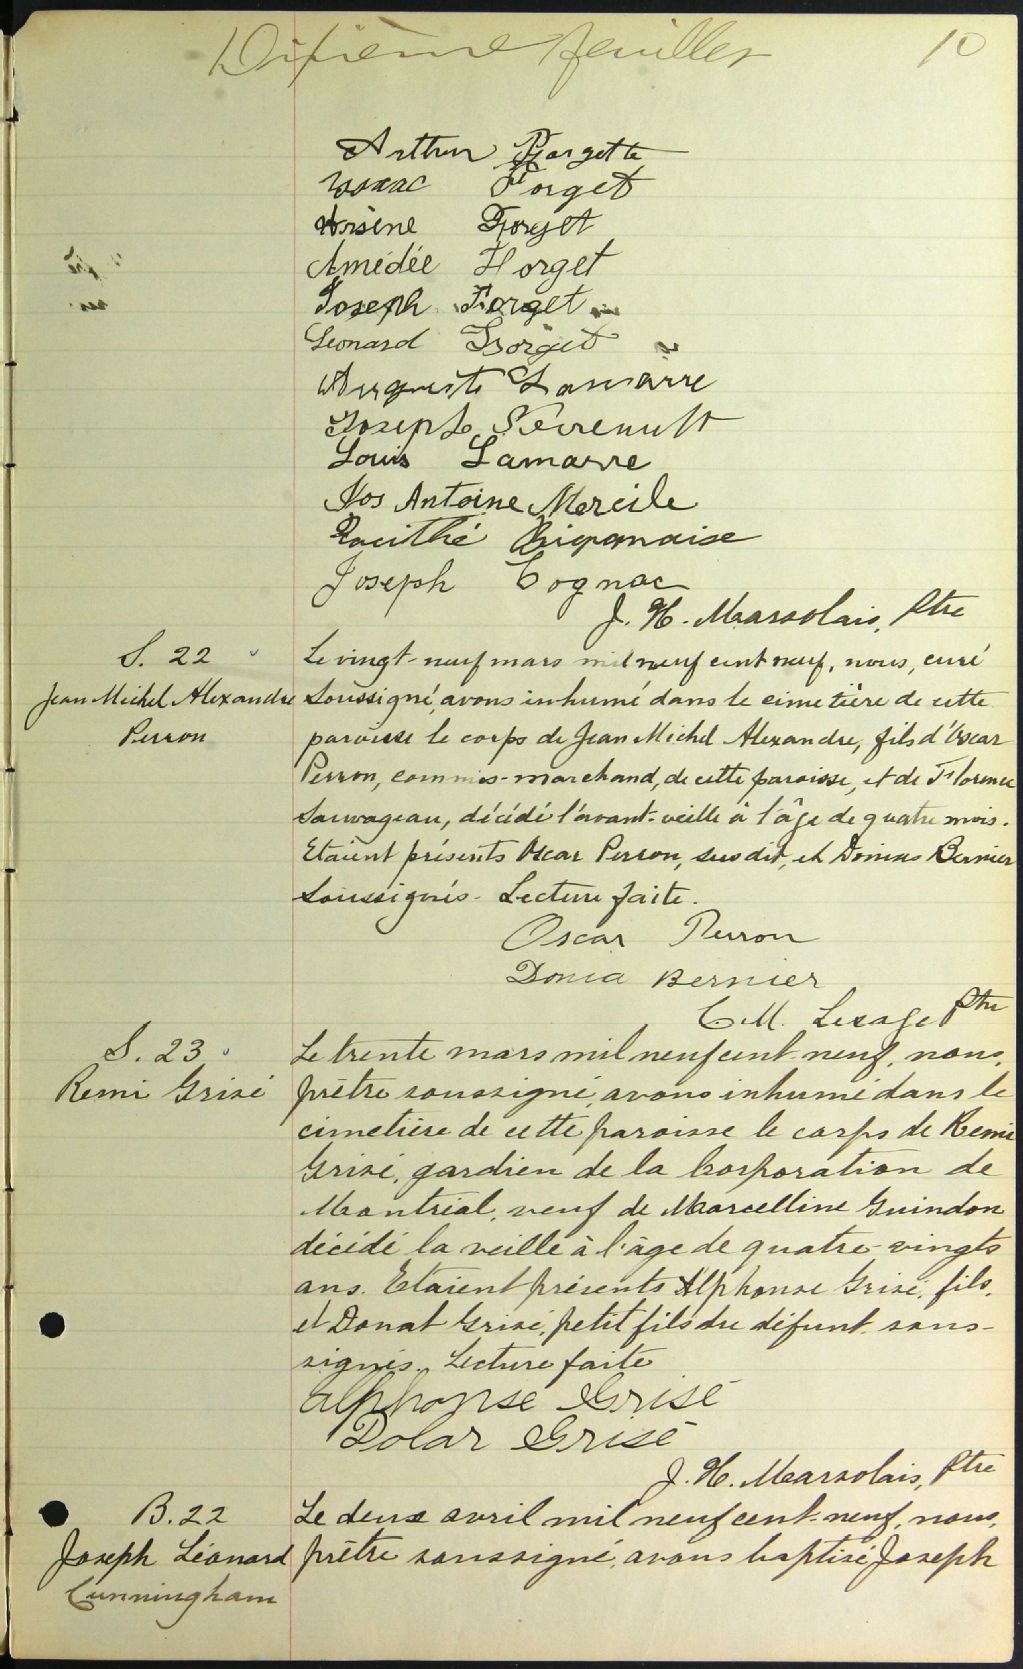 Dixième feuillet 10
Arthur Forgette
Isaac Forget
Arsène Forget
Amédée Forget
Joseph Forget
Léonard Forget
Auguste Lamarre
Joseph
Louis Lamarre
Jos Antoine Mercile
Joseph Cognac
J. H. Marsolais, Ptre
S. 22
Jean Michel Alexandre
Perron
Le vingt-neuf mars mil neuf cent neuf, nous, curé
soussigné, avons inhumé dans le cimetière de cette
paroisse le corps de Jean Michel Alexandre, fils d'Oscar
Perron, commis-marchand, de cette paroisse, et de Florence
Sauvageau, décédé l'avant-veille à l'âge de quatre mois.
Etaient présents Oscar Perron, susdit, et Donias Bernier
soussignés. Lecture faite.
Oscar Perron
Donia Bernier
C. M. Lesage Ptre
S. 23
Remi Grisé
Le trente mars mil neuf cent-neuf, nous,
prêtre soussigné, avons inhumé dans le
cimetière de cette paroisse le corps de Remi
Grisé, gardien de la Corporation de
Montréal, veuf de Marcelline Guindon
décédé la veille à l'âge de quatre-vingts
ans. Etaient présents Alphonse Grisé, fils,
et Donat Grisé, petit fils du défunt sous-
signés. Lecture faite
Alphonse Grisé
Dolar Grisé
J. H. Marsolais, Ptre
B. 22
Joseph Léonard
Cunningham
Le deux avril mil neuf cent-neuf, nous,
prêtre soussigné, avons baptisé Joseph